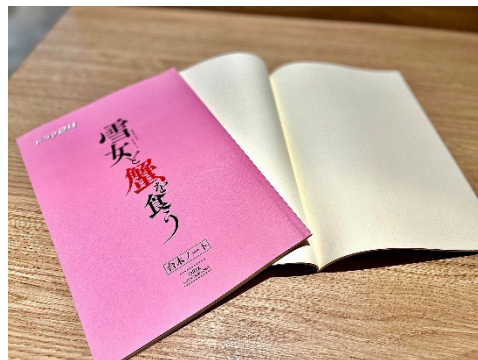 ドラマ24
雪女と蟹を食う
台本ノート